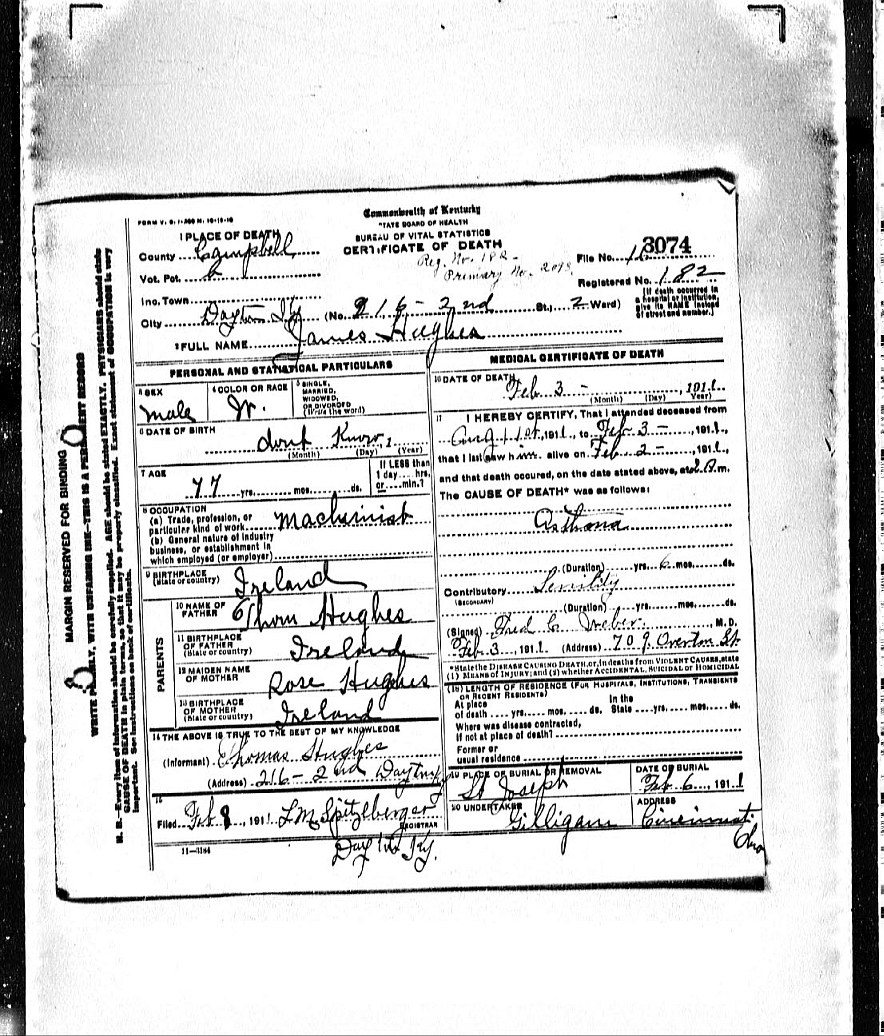 FORM V. S. 1-
Commonwealth of Kentucky
TATE BOARD OF HEALTH
BUREAU OF VITAL STATISTICS
CERTIFICATE OF DEATH
1 PLACE OF DEATH
County Campbell
Vot. Pct.
Inc. Town
City Dayton Ky (No. 216 - 2nd St.; 2 Ward)
Reg. No.
Primary No.
File No. 3074
Registered No. 182
(If death occurred in a hospital or institution, give its NAME instead of street and number.)
2 FULL NAME James Hughes
PERSONAL AND STATISTICAL PARTICULARS
3 SEX Male
4 COLOR OR RACE W.
5 SINGLE, MARRIED, WIDOWED, OR DIVORCED (Write the word)
6 DATE OF BIRTH dont Know, 1
(Month) (Day) (Year)
7 AGE 77 yrs. mos. ds.
If LESS than 1 day hrs. or min.?
8 OCCUPATION
(a) Trade, profession, or particular kind of work Machinist
(b) General nature of industry business, or establishment in which employed (or employer)
9 BIRTHPLACE (State or country) Ireland
PARENTS
10 NAME OF FATHER Thom Hughes
11 BIRTHPLACE OF FATHER (State or country) Ireland
12 MAIDEN NAME OF MOTHER Rose Hughes
13 BIRTHPLACE OF MOTHER (State or country) Ireland
14 THE ABOVE IS TRUE TO THE BEST OF MY KNOWLEDGE
(Informant) Thomas Hughes
(Address) 216 - 2nd Dayton
15
Filed Feb 8, 1911 L M Spitzlberger
REGISTRAR
Dayton Ky.
11-3184
MEDICAL CERTIFICATE OF DEATH
16 DATE OF DEATH Feb 3 - 1911
(Month) (Day) Year)
17 I HEREBY CERTIFY, That I attended deceased from
Aug 1st, 1911, to Feb 3 -, 1911,
that I last saw him alive on Feb 2 -, 1911,
and that death occured, on the date stated above, at m.
The CAUSE OF DEATH* was as follows:
Asthma
(Duration) yrs. 6 mos. ds.
Contributory Senility
(SECONDARY)
(Duration) yrs. mos. ds.
(Signed) Fred C Weber, M. D.
Feb 3, 1911 (Address) 709 Overton St
*State the DISEASE CAUSING DEATH, or, in deaths from VIOLENT CAUSES, state (1) MEANS OF INJURY; and (2) whether ACCIDENTAL, SUICIDAL or HOMICIDAL
(18) LENGTH OF RESIDENCE (FOR HOSPITALS, INSTITUTIONS, TRANSIENTS OR RECENT RESIDENTS)
At place of death yrs. mos. ds. In the State yrs. mos. ds.
Where was disease contracted, if not at place of death?
Former or usual residence
19 PLACE OF BURIAL OR REMOVAL St Joseph
DATE OF BURIAL Feb 6, 1911
20 UNDERTAKER Gilligan
ADDRESS Cincinnati Oho
MARGIN RESERVED FOR BINDING
WRITE PLAINLY, WITH UNFADING INK—THIS IS A PERMANENT RECORD
N. B.—Every item of information should be carefully supplied. AGE should be stated EXACTLY. PHYSICIANS should state CAUSE OF DEATH in plain terms, so that it may be properly classified. Exact statement of OCCUPATION is very important. See instructions on back of certificate.